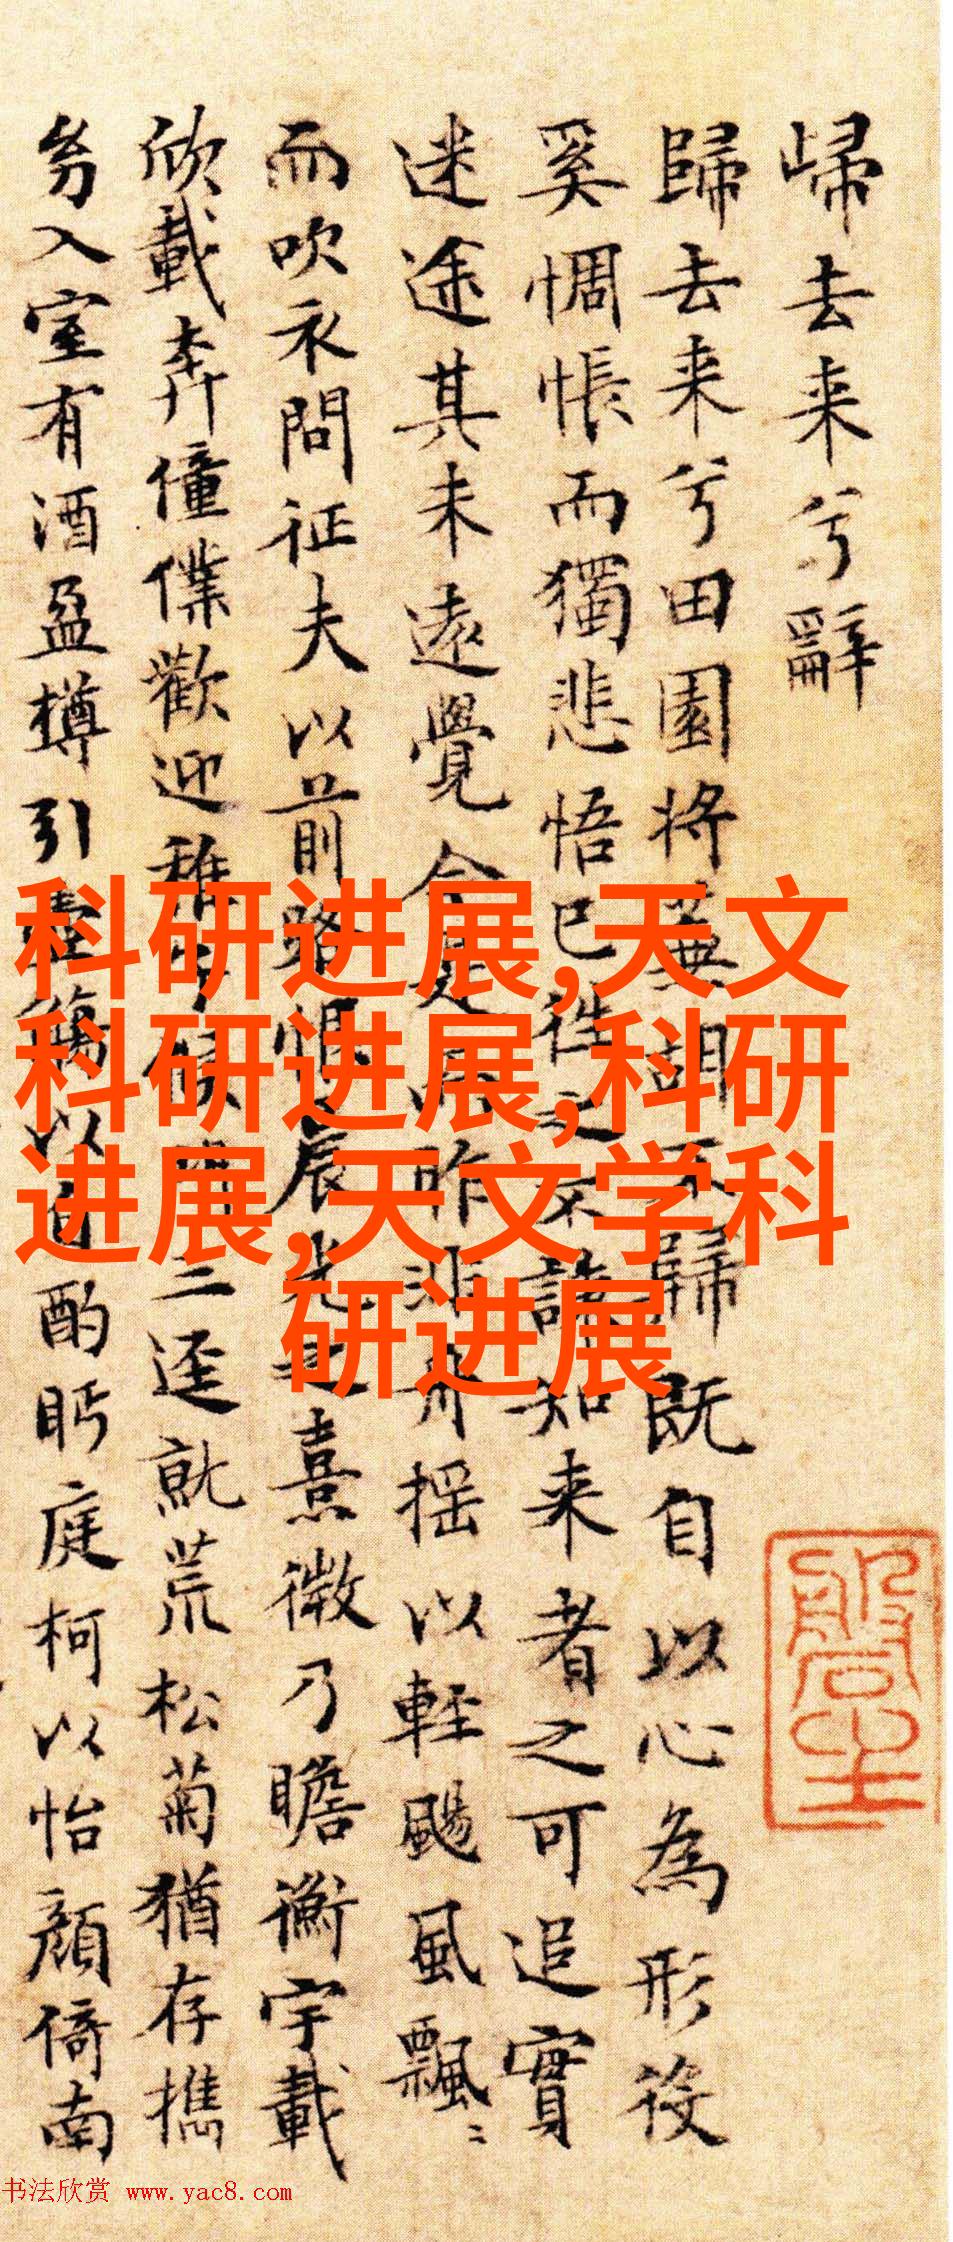 歸去来兮辭
歸去来兮田園将蕪胡不歸既自以心為形役
奚惆悵而獨悲悟已往之不諫知来者之可追實
迷途其未遠覺今是而昨非舟摇以輕颺風飄〻
而吹衣問征夫以前路恨晨光之熹微乃瞻衡宇載
欣載奔僮僕歡迎稚候三逕就荒松菊猶存攜
幼入室有酒盈樽引壺觴以自酌眄庭柯以怡顔倚南
科研进展,天文
科研进展,科研
进展,天文学科
研进展
书法欣赏 www.yac8.com